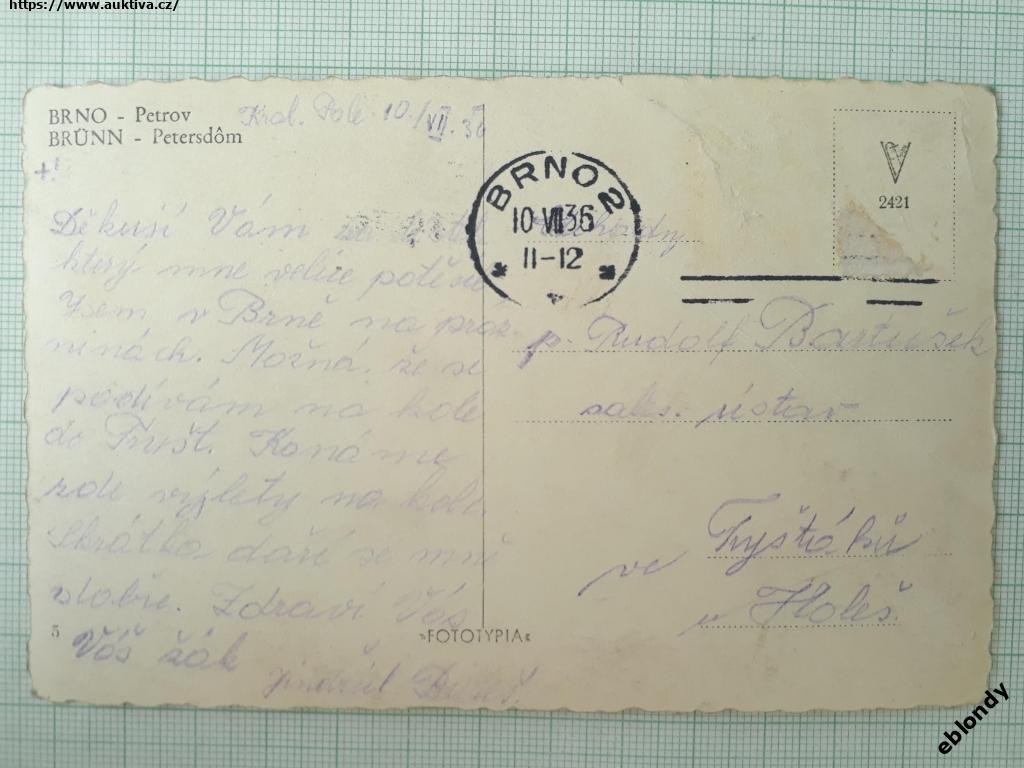 https://www.auktiva.cz/
BRNO - Petrov
BRÜNN - Petersdôm
Král. Pole 10./VII. 36
+!
Děkuji Vám za
který mne velice potěšil
Jsem v Brně na práz-
ninách. Možná, že se
podívám na kole
do Fryšt. Konáme
zde výlety na kole.
Skrátka daří se mně
dobře. Zdraví Vás
Váš žák
Jindřich
5
»FOTOTYPIA«
BRNO 2
10 VII 36
11-12
2421
p. Rudolf Bartušek
sales. ústav
ve Fryštáku
u Holeš.
eblondy